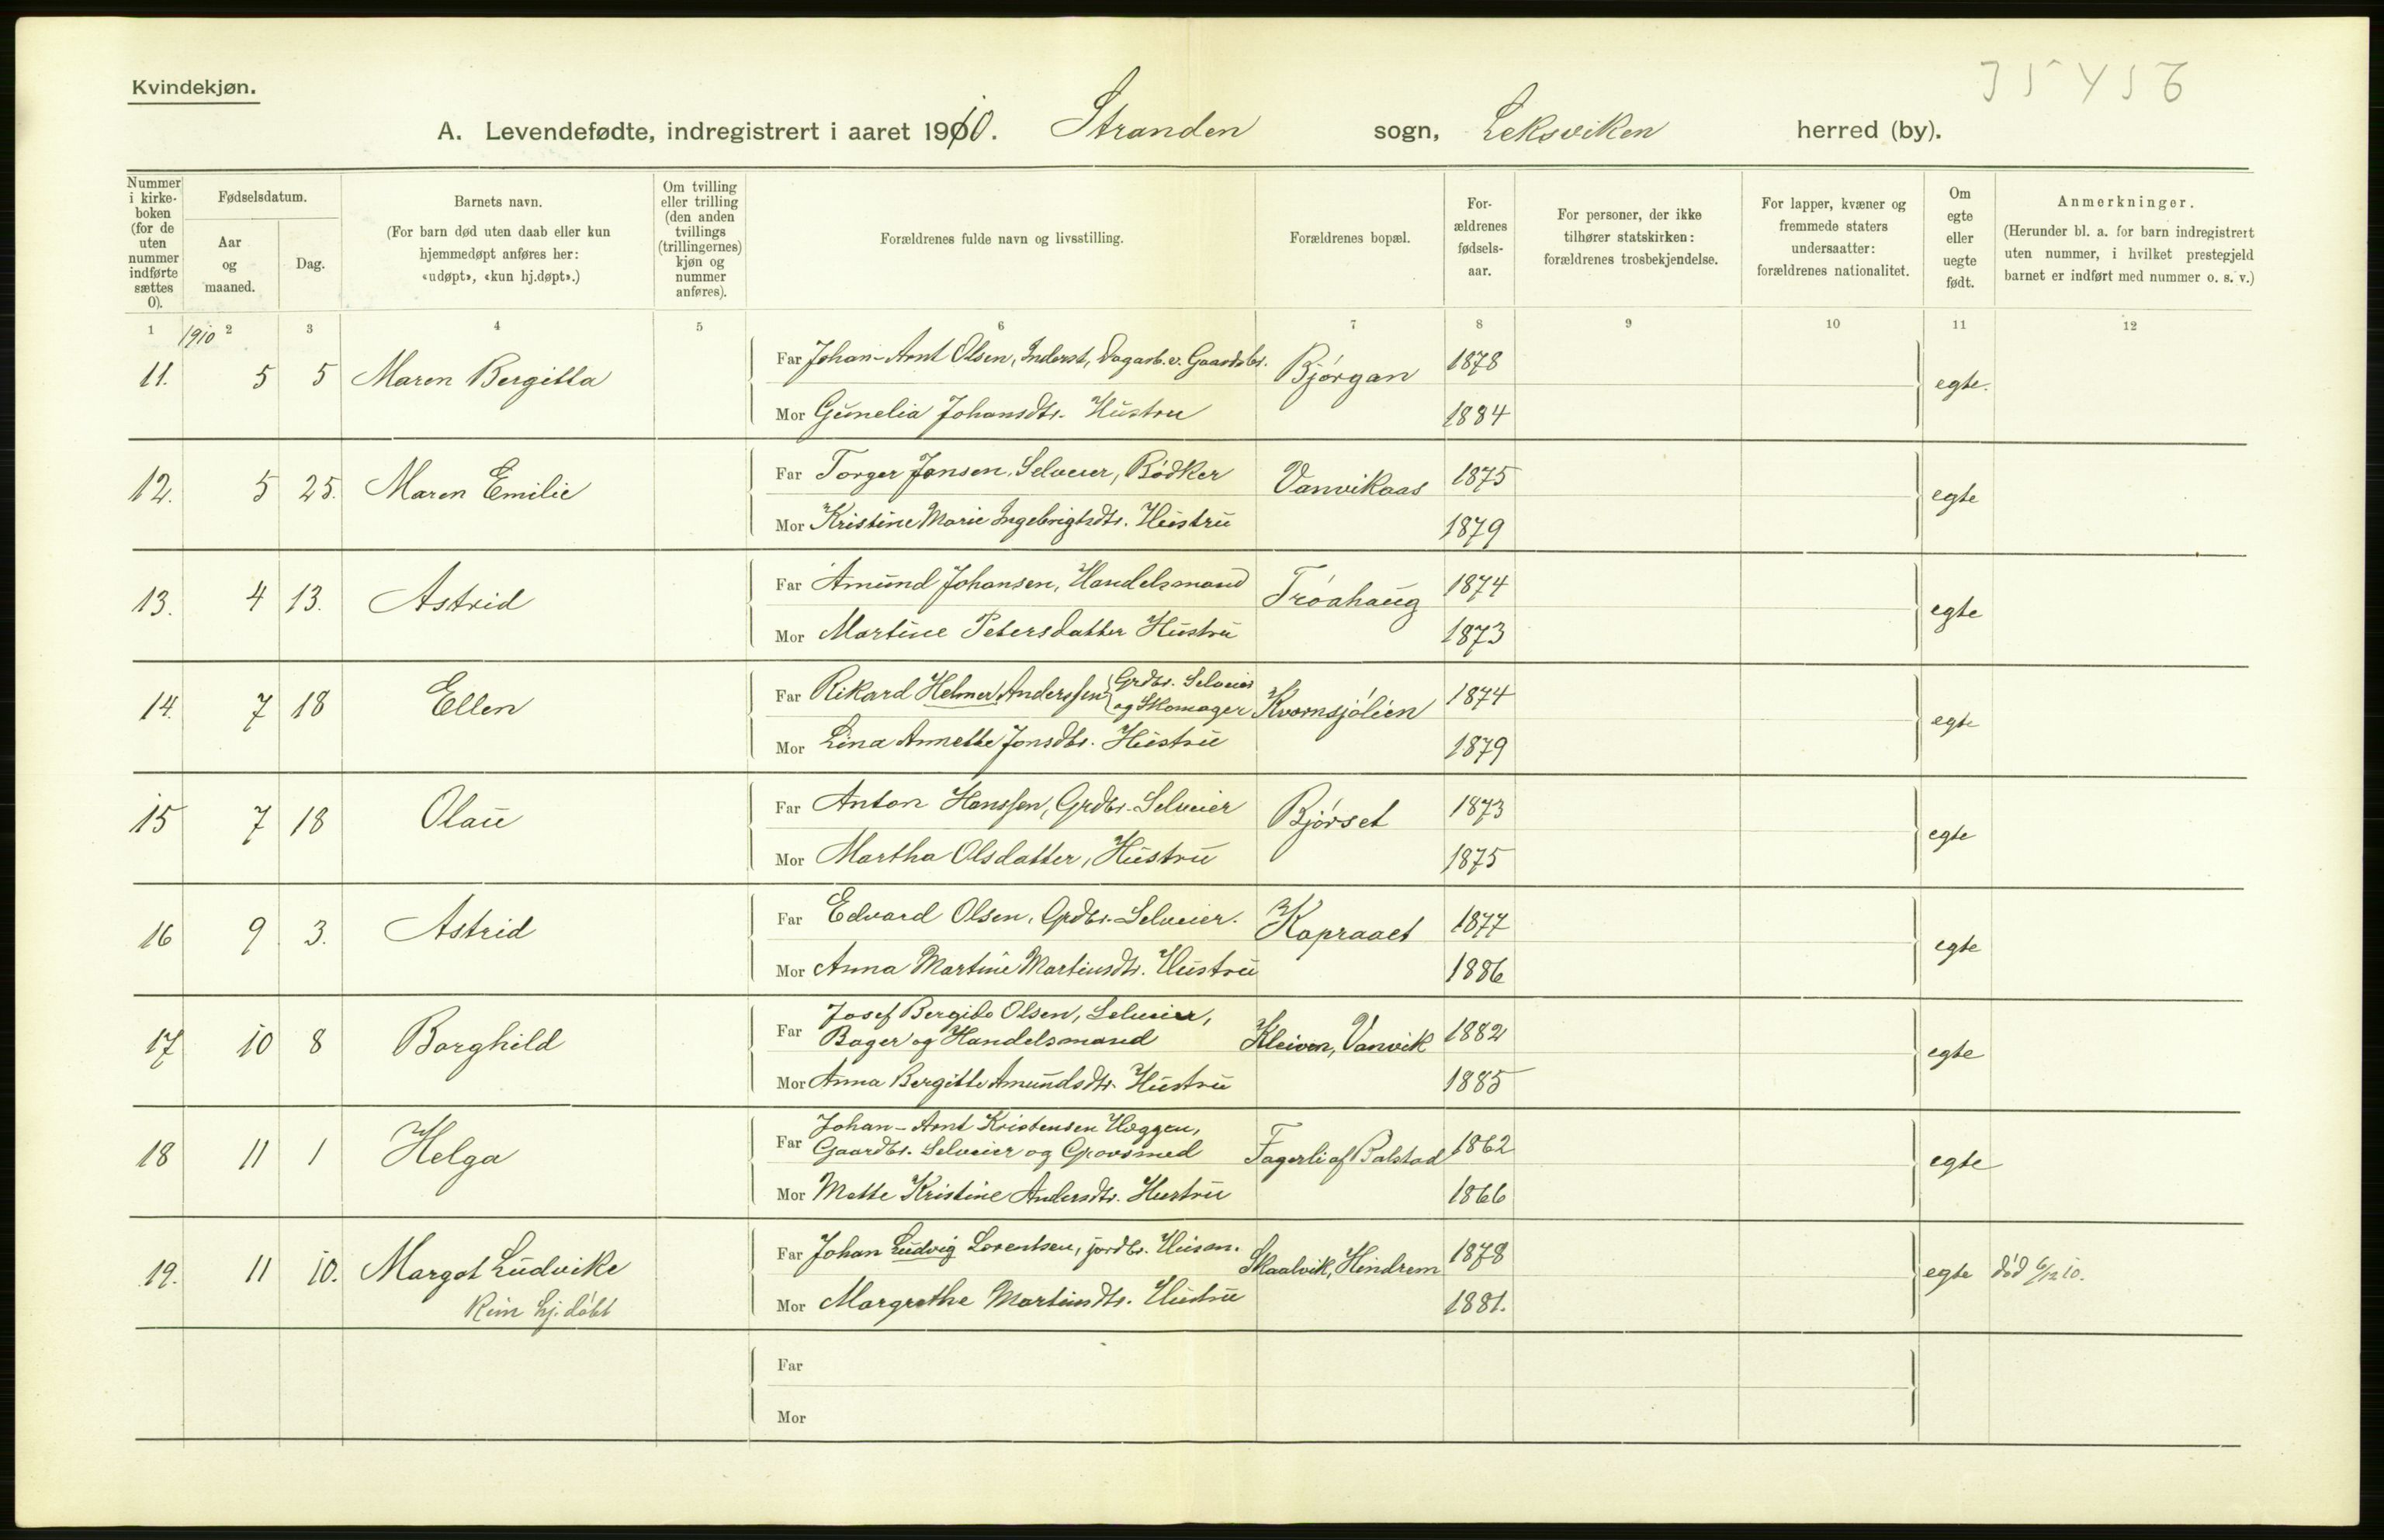 Kvindekjøn.
35456
A. Levendefødte, indregistrert i aaret 1910. Stranden sogn, Leksviken herred (by).
Nummer i kirkeboken (for de uten nummer indførte sættes 0).
Fødselsdatum.
Aar og maaned.
Dag.
Barnets navn.
(For barn død uten daab eller kun hjemmedøpt anføres her: «udøpt», «kun hj.døpt».)
Om tvilling eller trilling (den anden tvillings (trillingernes) kjøn og nummer anføres).
Forældrenes fulde navn og livsstilling.
Forældrenes bopæl.
Forældrenes fødselsaar.
For personer, der ikke tilhører statskirken: forældrenes trosbekjendelse.
For lapper, kvæner og fremmede staters undersaatter: forældrenes nationalitet.
Om egte eller uegte født.
Anmerkninger.
(Herunder bl. a. for barn indregistrert uten nummer, i hvilket prestegjeld barnet er indført med nummer o. s. v.)
1 2 3 4 5 6 7 8 9 10 11 12
1910
11. 5 5 Maren Bergitta Far Johan-Arnt Olsen, Inderst, Dagarb. v. Gaardsbr. Bjørgan 1878 egte.
Mor Gunelia Johansdtr. Hustru 1884
12. 5 25. Maren Emilie Far Torger Jensen, Selveier, Bødker Vanvikaas 1875 egte
Mor Kristine Marie Ingebrigtsdtr. Hustru 1879
13. 4 13. Astrid Far Amund Johansen, Handelsmand Trøahaug 1874 egte
Mor Martine Petersdatter Hustru 1873
14. 7 18 Ellen Far Rikard Helmer Anderssen Grdbr. Selveier og Skomager Kvornsjølien 1874 egte
Mor Lina Annette Jonsdtr. Hustru 1879
15 7 18 Olau Far Anton Hanssen, Grdbr. Selveier Bjørset 1873 egte
Mor Martha Olsdatter, Hustru 1875
16 9 3. Astrid Far Edvard Olsen, Grdbr. Selveier. Kopraaet 1877 egte
Mor Anna Martine Martinsdtr. Hustru 1886
17 10 8 Borghild Far Josef Bergito Olsen, Selveier,
Bager og Handelsmand Kleiven, Vanvik 1882 egte
Mor Anna Bergitte Amundsdtr. Hustru 1885
18 11 1 Helga Far Johan-Arnt Kristensen Hæggen,
Gaardbr. Selveier og Grovsmed Fagerli af Palstad 1862 egte
Mor Mette Kristine Andersdtr. Hustru 1866
19. 11 10. Margot Ludvike Far Johan Ludvig Lorentsen, jordbr. Husm. Skaalvik, Hindrem 1878 egte død 6/12 10.
kun hj. døbt Mor Margrethe Martinsdtr. Hustru 1881.
Far
Mor